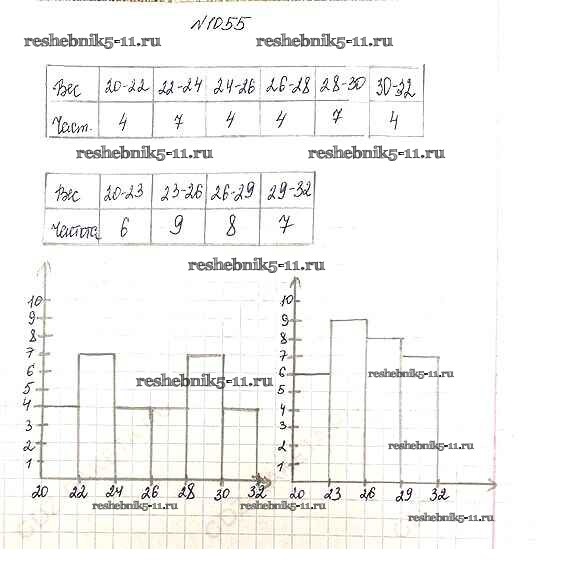 №1055
reshebnik5-11.ru reshebnik5-11.ru
Вес 20-22 22-24 24-26 26-28 28-30 30-32
Част. 4 7 4 4 7 4
reshebnik5-11.ru reshebnik5-11.ru
Вес 20-23 23-26 26-29 29-32
Частота 6 9 8 7
reshebnik5-11.ru
10
9
8
7
6
5
4
3
2
1
20 22 24 26 28 30 32
reshebnik5-11.ru
reshebnik5-11.ru
10
9
8
7
6
5
4
3
2
1
20 23 26 29 32
reshebnik5-11.ru
reshebnik5-11.ru
reshebnik5-11.ru